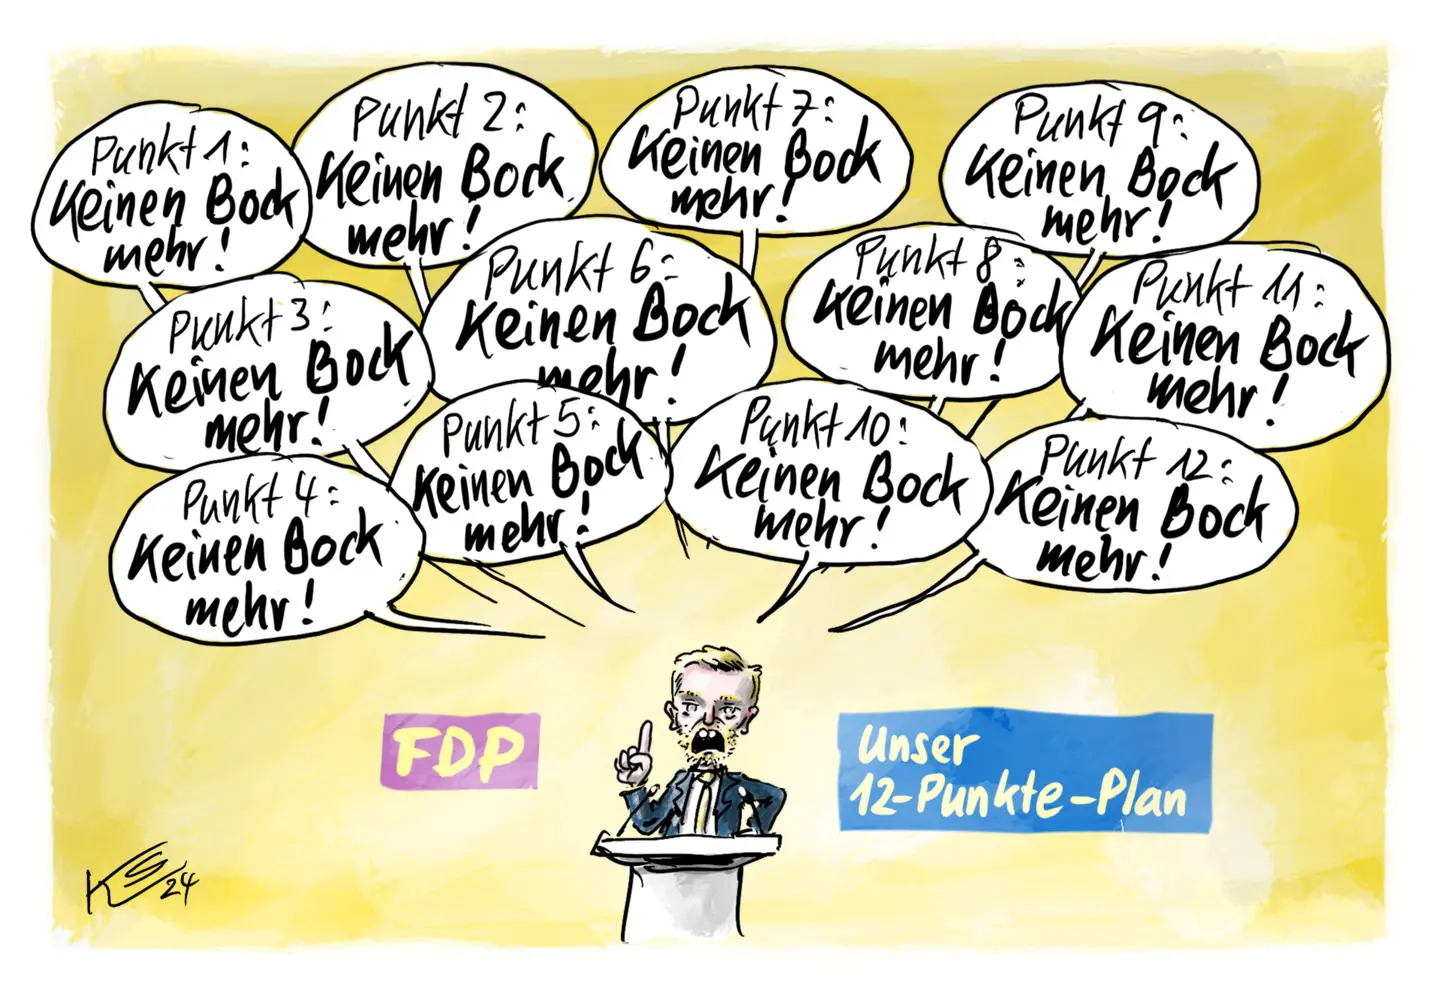 Punkt 1:
Keinen Bock
mehr!
Punkt 2:
Keinen Bock
mehr!
Punkt 3:
Keinen Bock
mehr!
Punkt 4:
Keinen Bock
mehr!
Punkt 5:
Keinen Bock
mehr!
Punkt 6:
Keinen Bock
mehr!
Punkt 7:
Keinen Bock
mehr!
Punkt 8:
Keinen Bock
mehr!
Punkt 9:
Keinen Bock
mehr!
Punkt 10:
Keinen Bock
mehr!
Punkt 11:
Keinen Bock
mehr!
Punkt 12:
Keinen Bock
mehr!
FDP
Unser
12-Punkte-Plan
KS 24